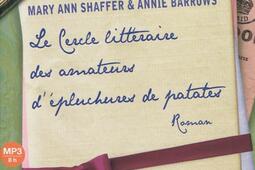 MARY ANN SHAFFER & ANNIE BARROWS
Le Cercle littéraire
des amateurs
d'épluchures de patates
Roman
MP3
8 h